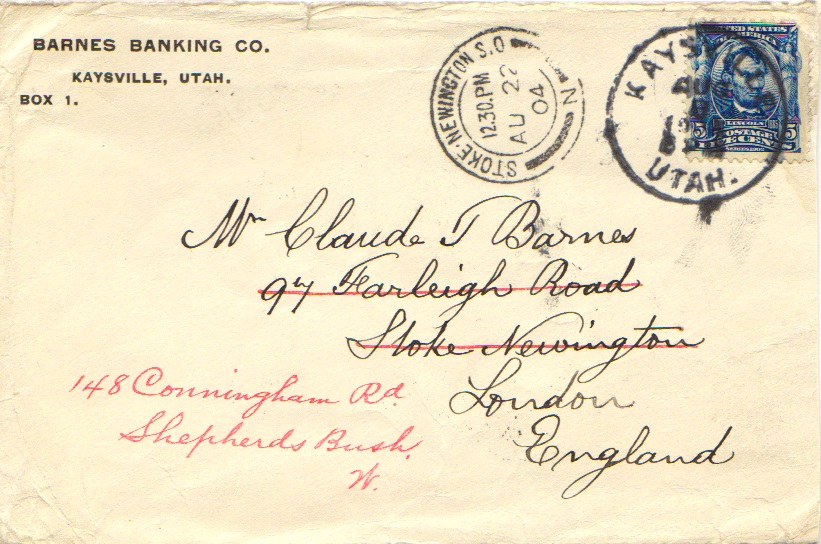 BARNES BANKING CO.
KAYSVILLE, UTAH.
BOX 1.
STOKE-NEWINGTON S.O
N
12.30.PM
AU 22
04
KAYSVILLE
UTAH.
UNITED STATES
OF AMERICA
LINCOLN
5 POSTAGE 5
CENTS
Mr Claude T Barnes
97 Farleigh Road
Stoke Newington
London
England
148 Conningham Rd
Shepherds Bush.
W.